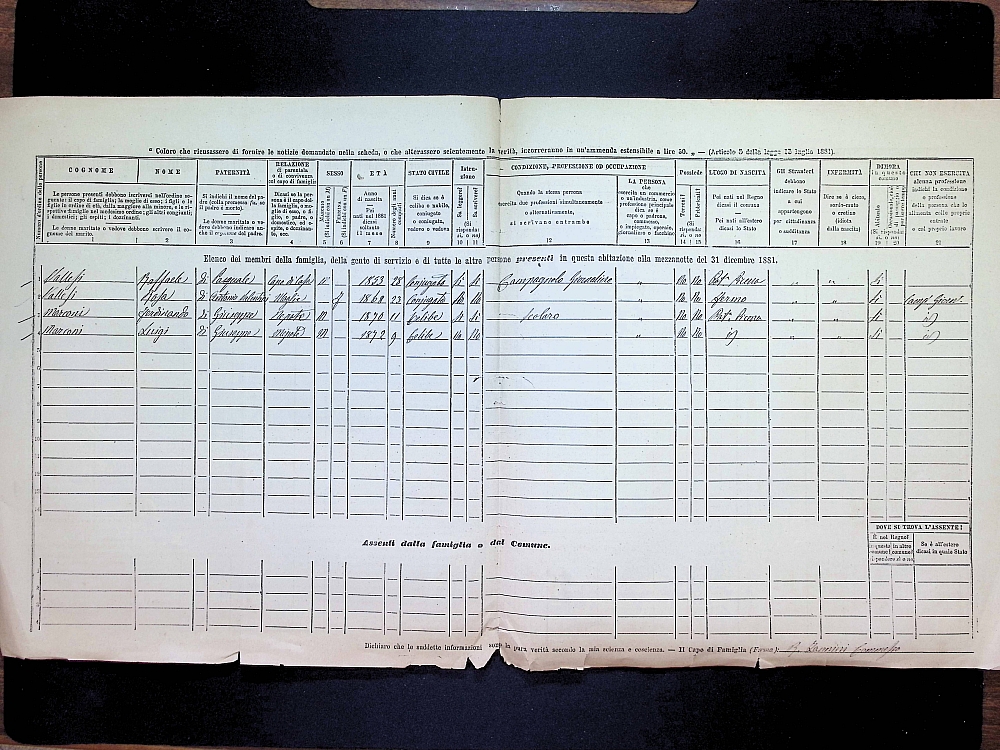 " Coloro che ricusassero di fornire le notizie domandate nella scheda, o che alterassero scientemente la verità, incorreranno in un'ammenda estensibile a lire 50. „ — (Articolo 5 della legge 15 luglio 1881).
COGNOME NOME PATERNITÀ RELAZIONE di parentela o di convivenza col capo di famiglia SESSO ETÀ STATO CIVILE Istruzione CONDIZIONE, PROFESSIONE OD OCCUPAZIONE Possiede LUOGO DI NASCITA Gli Stranieri INFERMITÀ DIMORA in questo comune CHI NON ESERCITA
Le persone presenti debbono iscriversi nell'ordine seguente: il capo di famiglia; la moglie di esso; i figli e le figlie in ordine di età, dalla maggiore alla minore, e le rispettive famiglie nel medesimo ordine; gli altri congiunti; i domestici; gli ospiti; i dozzinanti.
Le donne maritate o vedove debbono scrivere il cognome del marito.
Si indichi il nome del padre (colla promessa fu, se il padre è morto).
Le donne maritate o vedove debbono indicare anche il cognome del padre.
Dicasi se la persona è il capo della famiglia, o moglie di esso, o figlio, o padre, o domestico, o ospite, o dozzinante, ecc.
Anno di nascita
Pei nati nel 1881 dicasi soltanto il mese
Numero degli anni compiuti
Si dica se è celibe o nubile, coniugato o coniugata, vedovo o vedova
Sa leggere?
Sa scrivere?
Quando la stessa persona esercita due professioni simultaneamente o alternativamente, si scrivano entrambe
LA PERSONA che esercita un commercio o un'industria, come professione principale dica se è capo o padrone, commesso, o impiegato, operaio, giornaliero o facchino
Terreni?
Fabbricati?
Pei nati nel Regno dicasi il comune
Pei nati all'estero dicasi lo Stato
debbono indicare lo Stato a cui appartengono per cittadinanza o sudditanza
Dire se è cieco, sordo-muto o cretino (idiota dalla nascita)
alcuna professione indichi la condizione o professione della persona che lo alimenta colle proprie entrate o col proprio lavoro
1 2 3 4 5 6 7 8 9 10 11 12 13 14 15 16 17 18 19 20 21
Elenco dei membri della famiglia, della gente di servizio e di tutte le altre persone presenti in questa abitazione alla mezzanotte del 31 dicembre 1881.
1 Vallesi Raffaele Di Pasquale Capo di Casa M 1853 28 Conjugato Si Si Campagnolo Giornaliero „ No No „ „ Si
2 Vallesi Rosa Di Moglie f 23 Conjugata No No „ No No Fermo „ „ Si
3 Marconi Ferdinando Di Giuseppe Nepote M 1870 11 Celibe Si Si Scolaro „ No No „ „ Si id
4 Marconi Luigi Di Giuseppe Nepote M 1872 9 Celibe No No „ No No id „ „ Si id
Assenti dalla famiglia o dal Comune.
DOVE SI TROVA L'ASSENTE?
È nel Regno? Se è all'estero dicasi in quale Stato
in questo comune? in altro comune?
Dichiaro che le suddette informazioni sono in pura verità secondo la mia scienza e coscienza. — Il Capo di Famiglia (Firma):